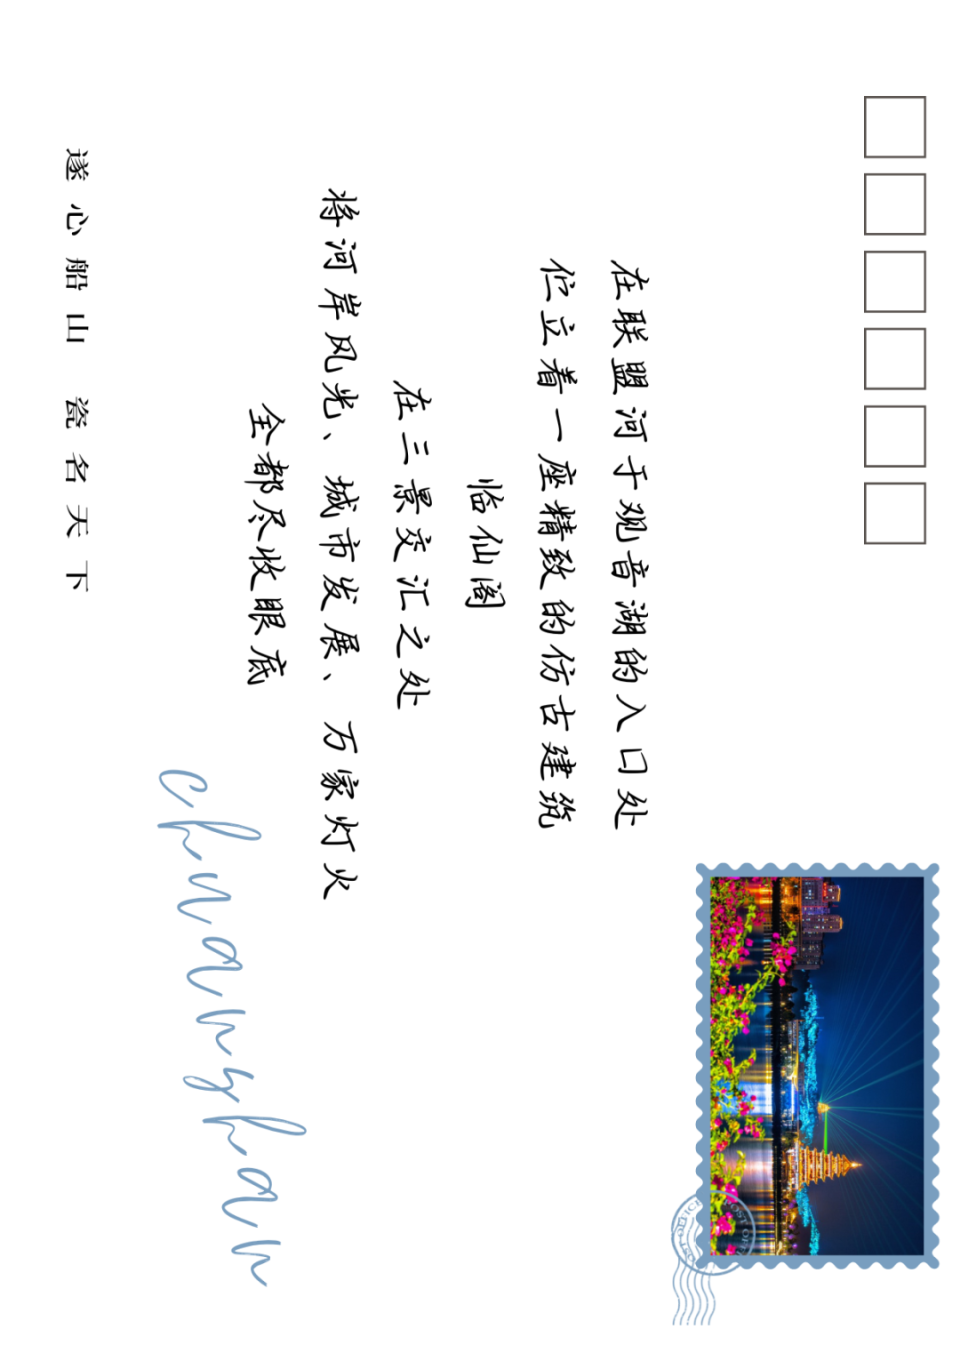 在联盟河于观音湖的入口处
伫立着一座精致的仿古建筑
临仙阁
在三景交汇之处
将河岸风光、城市发展、万家灯火
全都尽收眼底
chuanshan
遂心船山 瓷名天下
POST OFFICE
POST OFFICE